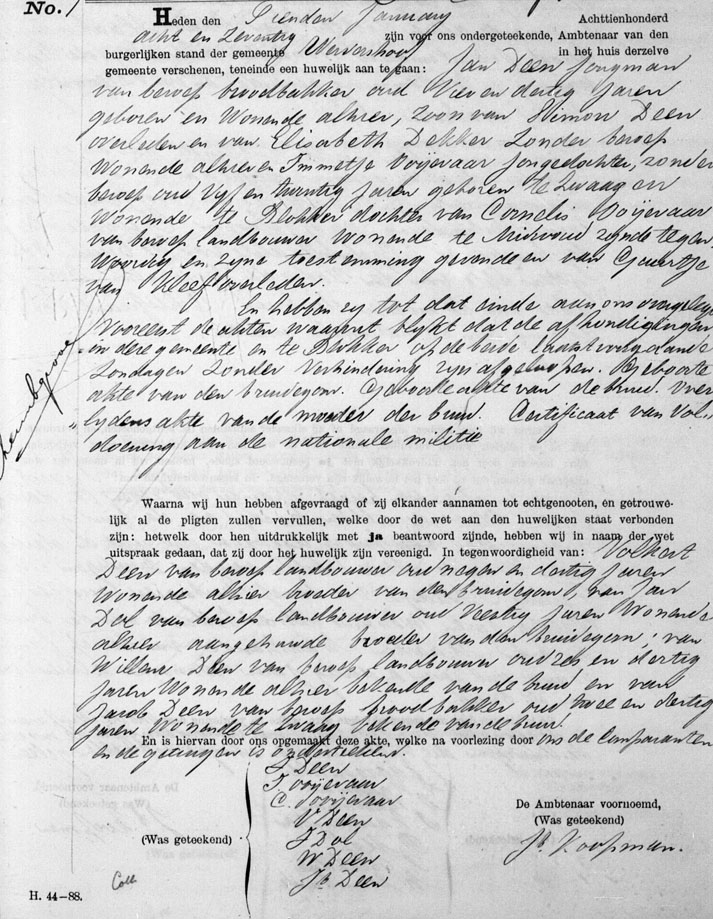 No. 1
Heden den Tienden January Achttienhonderd
acht en Zeventig zijn voor ons ondergeteekende, Ambtenaar van den
burgerlijken stand der gemeente Wervershoof in het huis derzelve
gemeente verschenen, teneinde een huwelijk aan te gaan: Jan Deen Jongman
van beroep broodbakker oud Vier en dertig Jaren
geboren en Wonende alhier, Zoon van Simon Deen
overleden en van Elisabeth Dekker Zonder beroep
Wonende alhier en Immetje Ooijevaar Jongedochter, zonder
beroep oud Vyf en twintig Jaren geboren te Zwaag en
Wonende te Blokker dochter van Cornelis Ooijevaar
van beroep landbouwer Wonende te Midwoud zynde tegen,
woordig en zyne toestemming gevende en van Geertje
van Kleef overleden.
En hebben zy tot dat einde aan ons overgelegd
Vooreerst de akten waaruit blykt dat de afkondigingen
in deze gemeente en te Blokker op de beide laatst voorgaande
Zondagen Zonder Verhindering zyn afgeloopen. Geboorte
akte van den bruidegom. Geboorte akte van de bruid. Over
lydens akte van de moeder der bruid. Certificaat van Vol„
doening aan de nationale militie
Waarna wij hun hebben afgevraagd of zij elkander aannamen tot echtgenooten, en getrouwe-
lijk al de pligten zullen vervullen, welke door de wet aan den huwelijken staat verbonden
zijn: hetwelk door hen uitdrukkelijk met ja beantwoord zijnde, hebben wij in naam der wet
uitspraak gedaan, dat zij door het huwelijk zijn vereenigd. In tegenwoordigheid van: Volkert
Deen van beroep landbouwer oud negen en dertig Jaren
Wonende alhier broeder van den bruidegom, van Jan
Dol van beroep landbouwer oud Veertig Jaren Wonende
alhier aangehuwde broeder van den bruidegom; van
Willem Deen van beroep landbouwer oud zes en dertig
Jaren Wonende alhier bekende van de bruid en van
Jacob Deen van beroep broodbakker oud twee en dertig
Jaren Wonende te Zwaag bekende van de bruid.
En is hiervan door ons opgemaakt deze akte, welke na voorlezing door ons de Comparanten
en de getuigen is onderteekend.
J Deen
I. Ooijevaar
C. Ooijevaar
V Deen
J Dol
W Deen
Jb Deen
(Was geteekend)
De Ambtenaar voornoemd,
(Was geteekend)
Jb. Koopman.
Coll
H. 44—88.